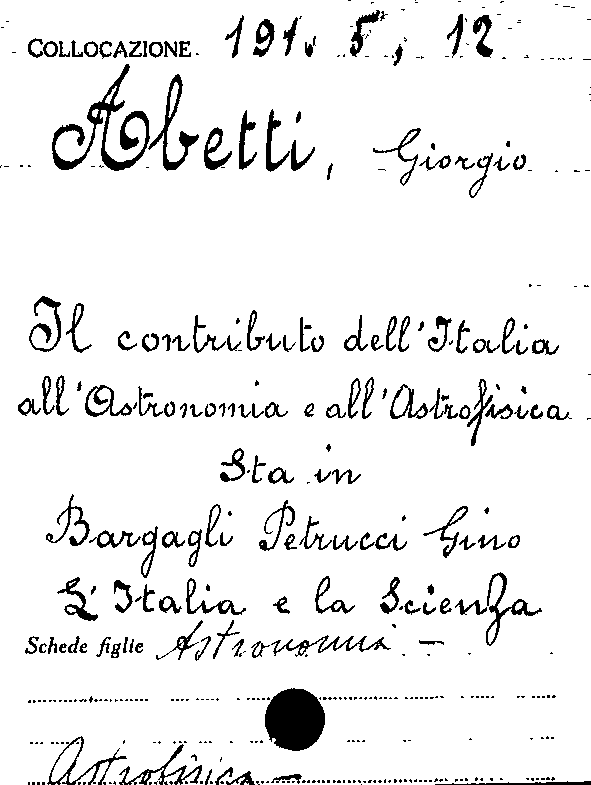 COLLOCAZIONE 191. 5, 12
Abetti, Giorgio
Il contributo dell'Italia
all'Astronomia e all'Astrofisica
Sta in
Bargagli Petrucci Gino
L'Italia e la Scienza
Schede figlie Astronomia -
Astrofisica -